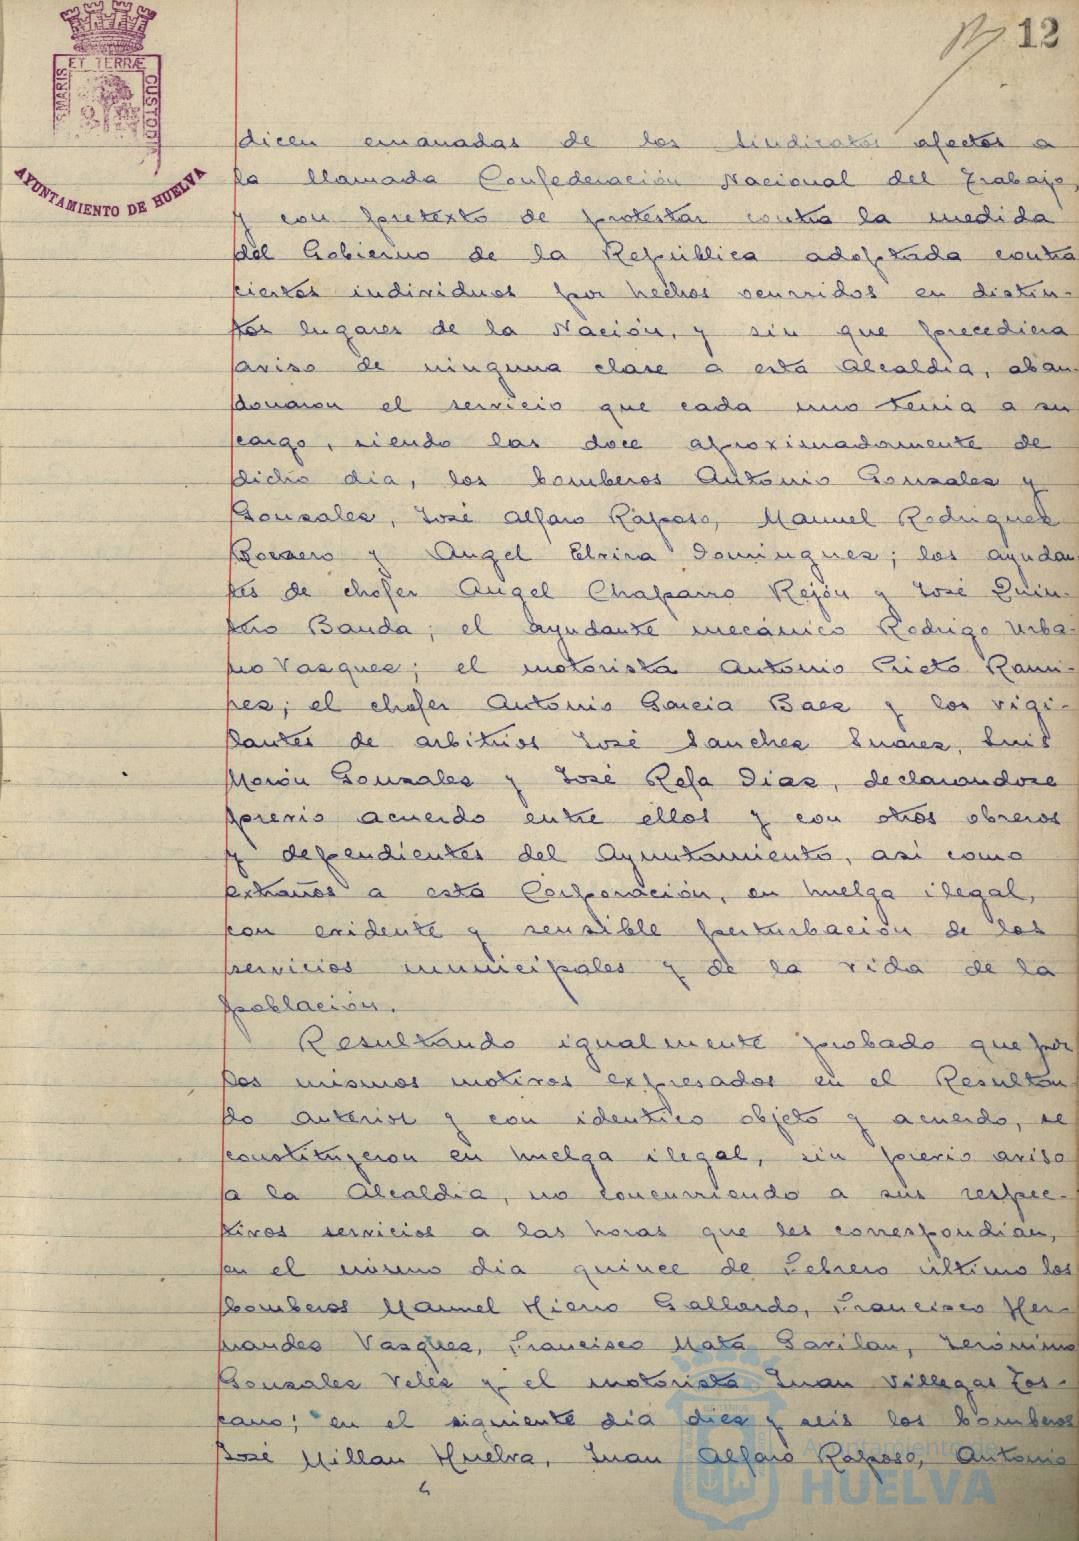 12
ET TERRÆ
MARIS
CUSTODI
AYUNTAMIENTO DE HUELVA
dicen emanadas de los Sindicatos afectos a
la llamada Confederación Nacional del Trabajo,
y con pretexto de protestar contra la medida
del Gobierno de la República adoptada contra
ciertos individuos por hechos ocurridos en distin-
tos lugares de la Nación, y sin que precediera
aviso de ninguna clase a esta Alcaldia, aban-
donaron el servicio que cada uno tenia a su
cargo, siendo las doce aproximadamente de
dicho dia, los bomberos Antonio Gonzalez y
Gonzalez, José Alfaro Raposo, Manuel Rodriguez
Romero y Angel Elvira Dominguez; los ayudan-
tes de chofer Angel Chaparro Rejón y José Quin-
tero Banda; el ayudante mecánico Rodrigo Urba-
no Vazquez; el motorista Antonio Prieto Rami-
rez; el chofer Antonio Garcia Baez y los vigi-
lantes de arbitrios José Sanchez Suarez, Luis
Morón Gonzalez y José Refa Diaz, declarandose
previo acuerdo entre ellos y con otros obreros
y dependientes del Ayuntamiento, asi como
extraños a esta Corporación, en huelga ilegal,
con evidente y sensible perturbación de los
servicios municipales y de la vida de la
población.
Resultando igualmente probado que por
los mismos motivos expresados en el Resultan
do anterior y con identico objeto y acuerdo, se
constituyeron en huelga ilegal, sin previo aviso
a la Alcaldia, no concurriendo a sus respec-
tivos servicios a las horas que les correspondian,
en el mismo dia quince de Febrero último los
bomberos Manuel Hierro Gallardo, Francisco Her-
nandez Vazquez, Francisco Mata Gavilan, Jerónimo
Gonzalez Velez y el motorista Juan Villegas Tos-
cano; en el siguiente dia diez y seis los bomberos
José Millan Huelva, Juan Alfaro Raposo, Antonio
Ayuntamiento de
HUELVA